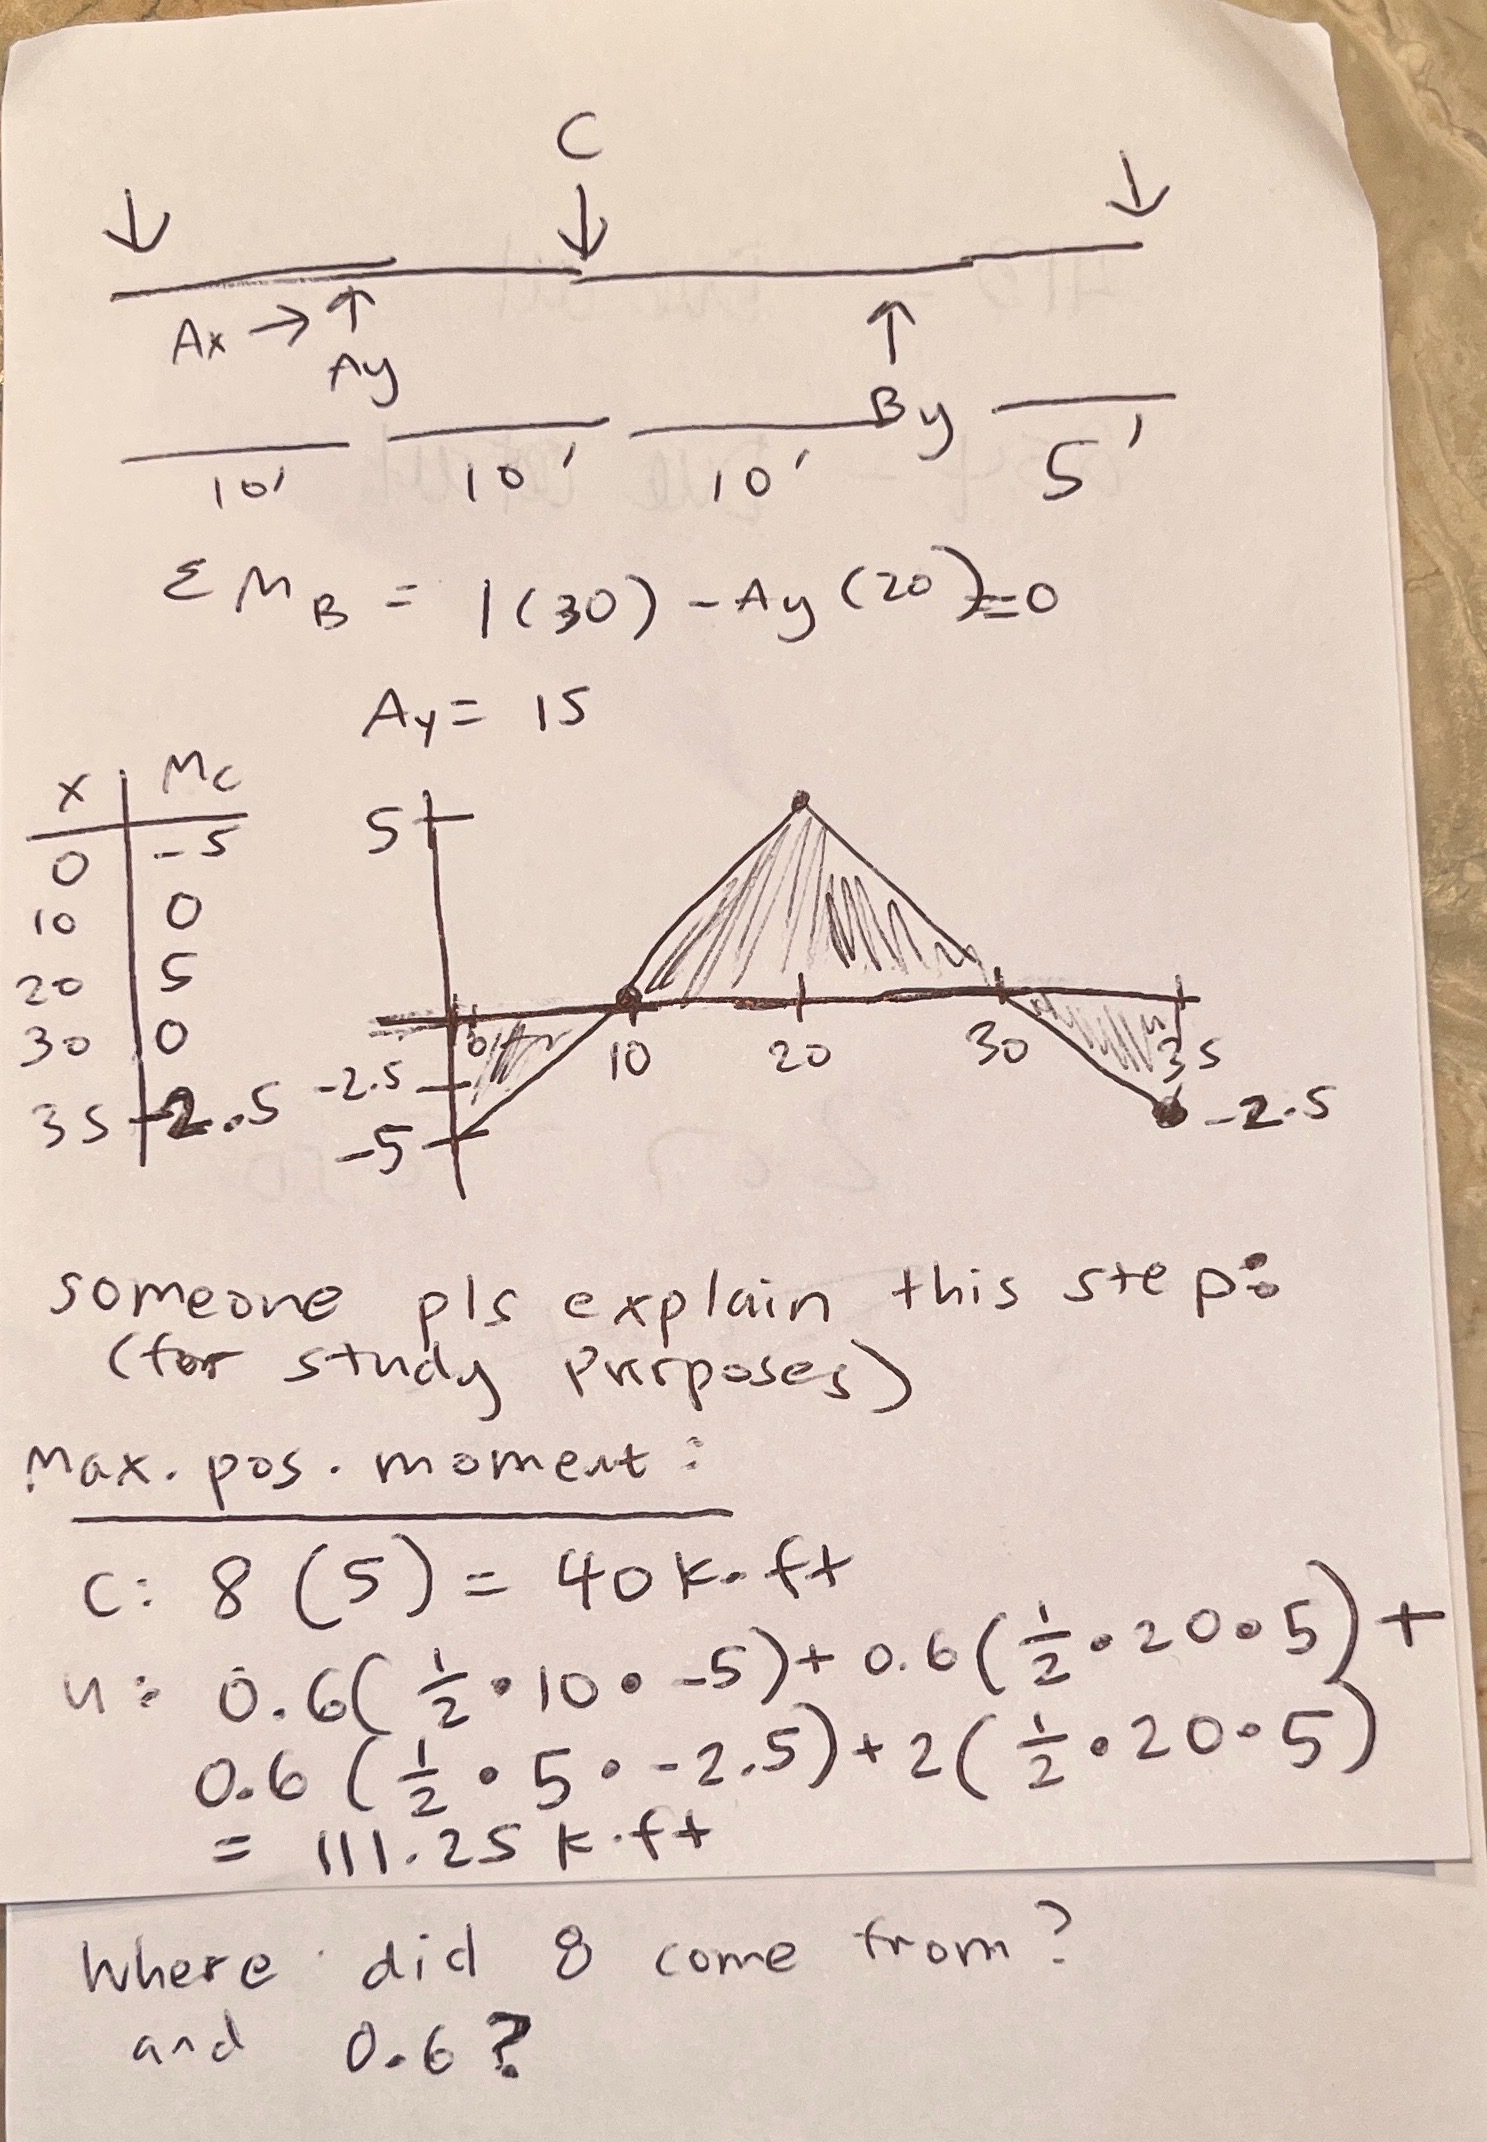 C
↓ ↓ ↓
Ax → ↑ ↑
Ay By
10' 10' 10' 5'
ΣM_B = 1(30) - Ay(20) = 0
Ay = 15
x | Mc
0 | -5
10 | 0
20 | 5
30 | 0
35 | -2.5
5
0 10 20 30 35
-2.5
-5
-2.5
someone pls explain this step:
(for study purposes)
Max. pos. moment:
C: 8(5) = 40 k·ft
u: 0.6(1/2 • 10 • -5) + 0.6(1/2 • 20 • 5) +
0.6(1/2 • 5 • -2.5) + 2(1/2 • 20 • 5)
= 111.25 k·ft
Where did 8 come from?
and 0.6?